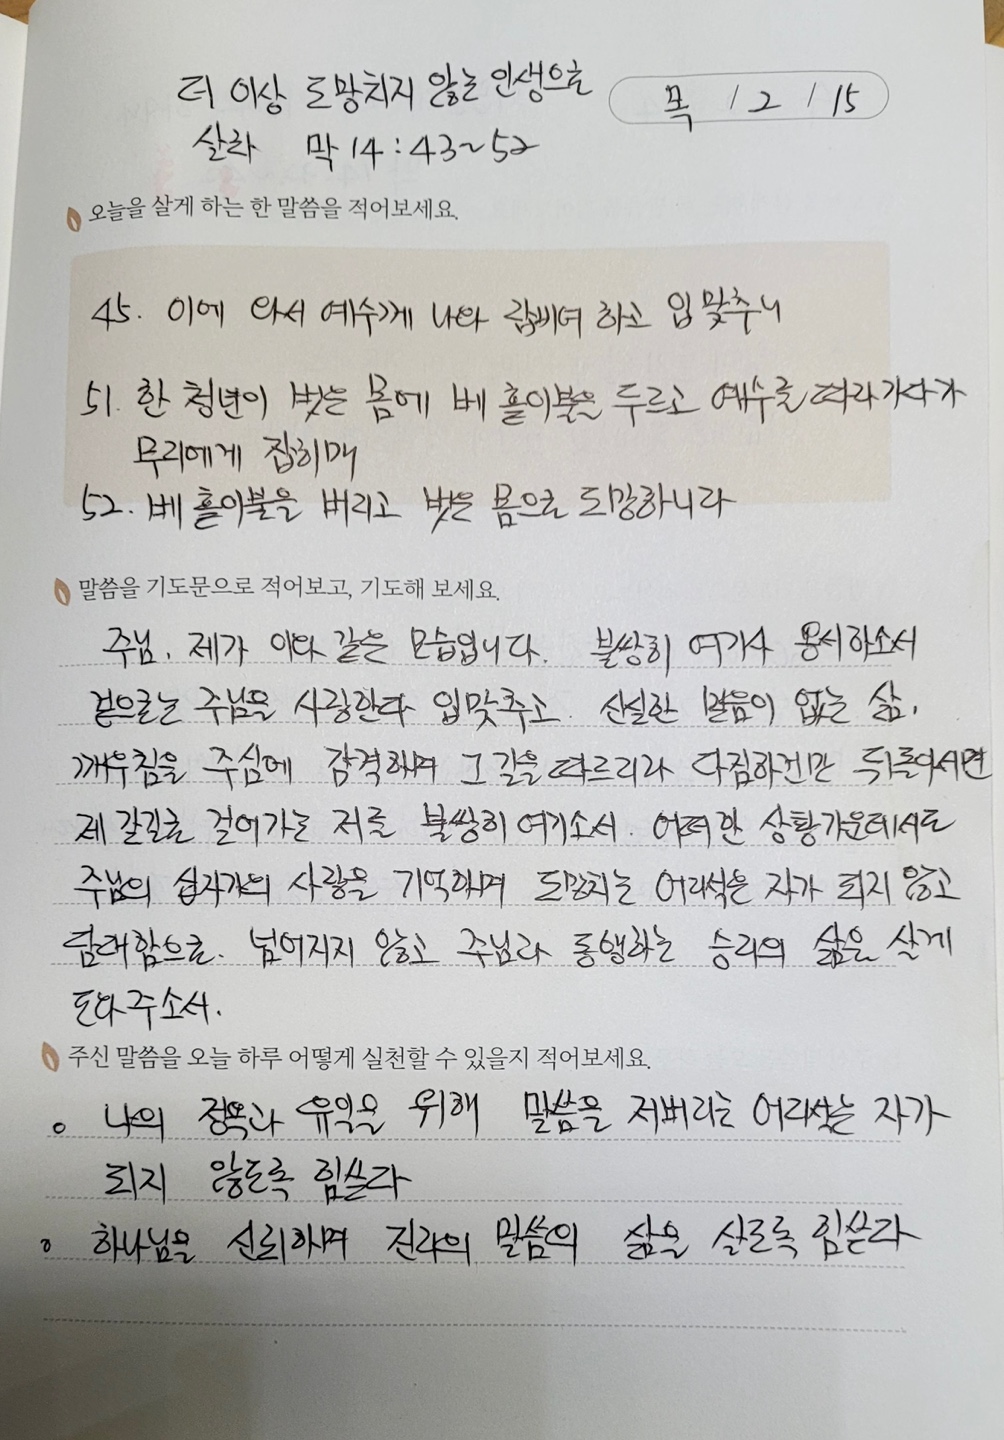 더 이상 도망치지 않는 인생으로
목 / 2 / 15
살라 막 14 : 43~52
오늘을 살게 하는 한 말씀을 적어보세요.
45. 이에 와서 예수께 나와 랍비여 하고 입 맞추니
51. 한 청년이 벗은 몸에 베 홑이불을 두르고 예수를 따라가다가
무리에게 잡히매
52. 베 홑이불을 버리고 벗은 몸으로 도망하니라
말씀을 기도문으로 적어보고, 기도해 보세요.
주님, 제가 이와 같은 모습입니다. 불쌍히 여기사 용서하소서
겉으로는 주님을 사랑한다 입맞추고 신실한 믿음이 없는 삶,
깨우침을 주심에 감격하며 그 길을 따르리라 다짐하건만 뒤돌아서면
제 갈길로 걸어가는 저를 불쌍히 여기소서. 어떠한 상황가운데서도
주님의 십자가의 사랑을 기억하며 도망치는 어리석은 자가 되지 않고
담대함으로. 넘어지지 않고 주님과 동행하는 승리의 삶을 살게
도와주소서.
주신 말씀을 오늘 하루 어떻게 실천할 수 있을지 적어보세요.
o 나의 정욕과 유익을 위해 말씀을 저버리는 어리석은 자가
되지 않도록 힘쓰라
o 하나님을 신뢰하며 진리의 말씀의 삶을 살도록 힘쓰라